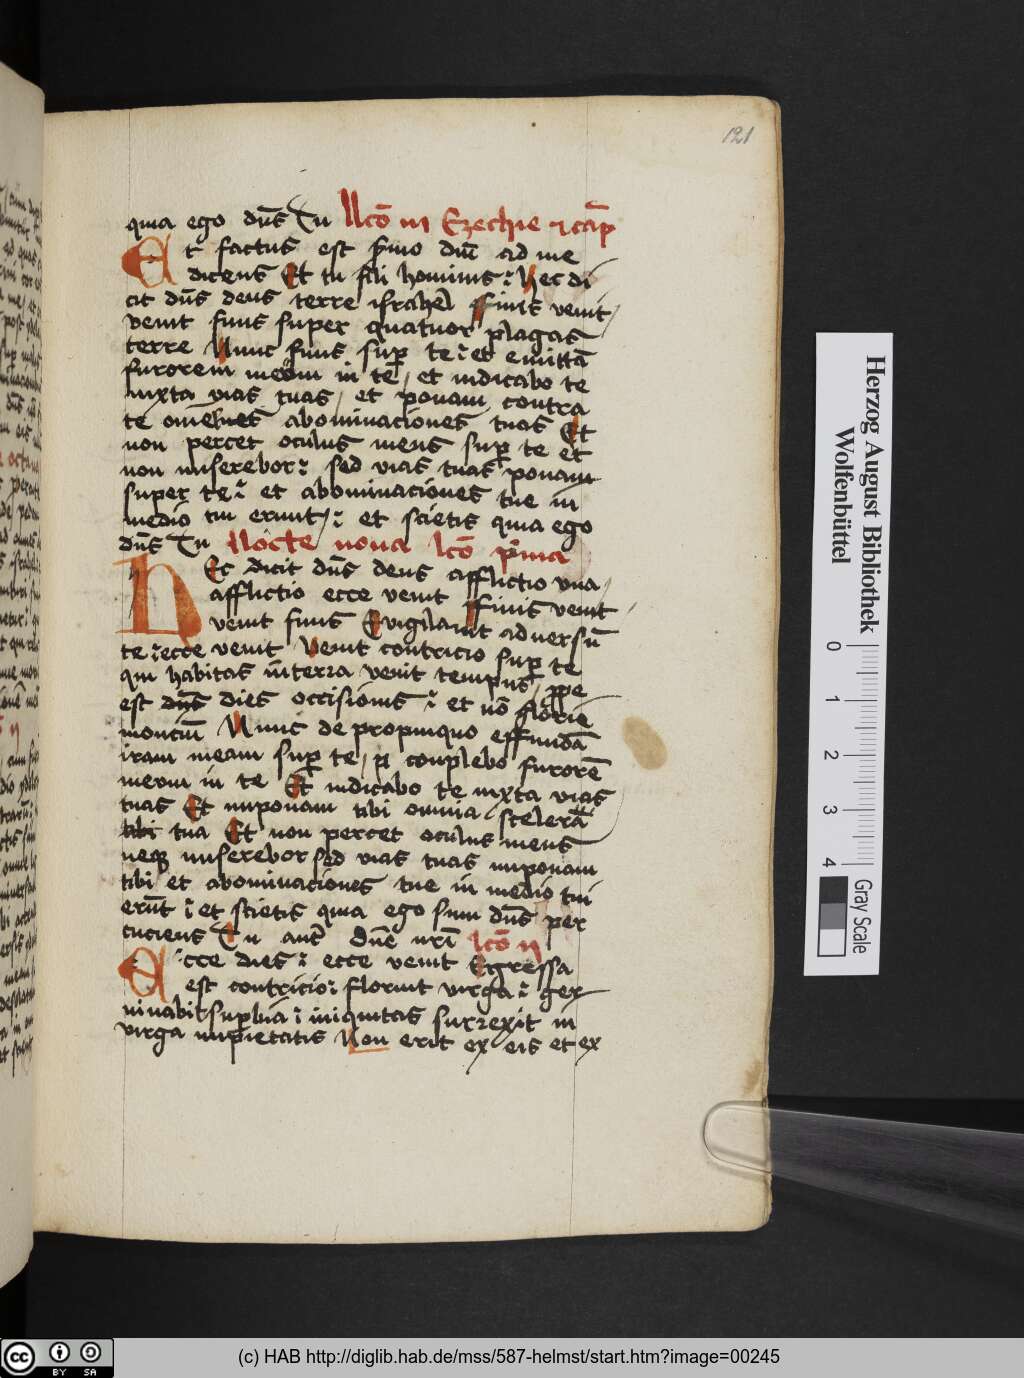 121
qua ego dn̄s Tu Lc̄o iii Ezechie 
Et factus est ẜmo dn̄i ad me
dicens Et tu fili hominis : hec di
cit dn̄s deus terre israhel ffinis venit /
venit finis super quatuor plagas
terre Nunc finis sup̄ te : et emittā
furorem meum in te / et iudicabo te
iuxta vias tuas / et ponam contra
te om̄es abominaciones tuas Et
non percet oculus meus sup̄ te et
non miserebor : sed vias tuas ponam
super te : et abominaciones tue in
medio tui erunt / : et scietis quia ego
dn̄s Tu Nocte nona lc̄o p̄ma
Hec dicit dn̄s deus afflictio vna /
afflictio ecce venit ffinis venit
venit finis Euigilauit aduersū
te : ecce venit Venit contricio sup̄ te
qui habitas in terra venit tempus / ꝓpe
est dies occisionis : et nō glorie
monciū Nunc de propinquo effundā
iram meam sup̄ te / et conplebo furorē
meum in te Et iudicabo te iuxta vias
tuas Et inponam tibi omnia scelera
tibi tua Et non percet oculus meus
neq miserebor sed vias tuas inponam
tibi / et abominaciones tue in medio tui
erūt : et scietis quia ego sum dn̄s per
cuciens Tu aut̄ dn̄e nr̄i lc̄o ii
Ecce dies : ecce venit Egressa
est contricio : floruit virga : ger
minabit supb̄ia : iniquitas surrexit in
virga impietatis Non erit ex eis et ex
Herzog August Bibliothek
Wolfenbüttel
0 1 2 3 4
Gray Scale
cc BY SA
(c) HAB http://diglib.hab.de/mss/587-helmst/start.htm?image=00245